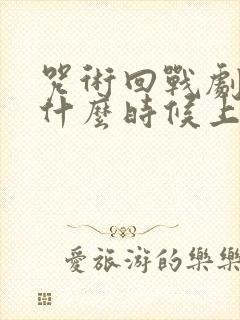 咒術回戰劇
什麼時候上
愛旅游的樂樂